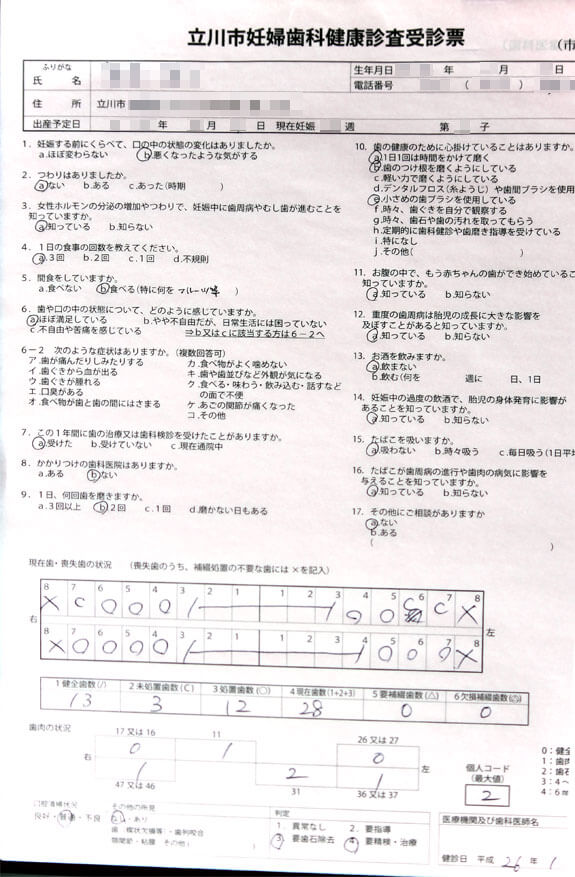 立川市妊婦歯科健康診査受診票
(市
ふりがな
氏 名
生年月日 年 月 日
電話番号 ( )
住 所 立川市
出産予定日 年 月 日 現在妊娠 週 第 子
1. 妊娠する前にくらべて、口の中の状態の変化はありましたか。
a.ほぼ変わらない b.悪くなったような気がする
2. つわりはありましたか。
a.ない b.ある c.あった(時期 )
3. 女性ホルモンの分泌の増加やつわりで、妊娠中に歯周病やむし歯が進むことを
知っていますか。
a.知っている b.知らない
4. 1日の食事の回数を教えてください。
a.3回 b.2回 c.1回 d.不規則
5. 間食をしていますか。
a.食べない b.食べる(特に何を フルーツ等 )
6. 歯や口の中の状態について、どのように感じていますか。
a.ほぼ満足している b.やや不自由だが、日常生活には困っていない
c.不自由や苦痛を感じている ⇒b又はcに該当する方は6-2へ
6-2 次のような症状はありますか。(複数回答可)
ア.歯が痛んだりしみたりする カ.食べ物がよく噛めない
イ.歯ぐきから血が出る キ.歯や歯並びなど外観が気になる
ウ.歯ぐきが腫れる ク.食べる・味わう・飲み込む・話すなど
エ.口臭がある の面で不便
オ.食べ物が歯と歯の間にはさまる ケ.あごの関節が痛くなった
コ.その他
7. この1年間に歯の治療又は歯科検診を受けたことがありますか。
a.受けた b.受けていない c.現在通院中
8. かかりつけの歯科医院はありますか。
a.ある b.ない
9. 1日、何回歯を磨きますか。
a.3回以上 b.2回 c.1回 d.磨かない日もある
10. 歯の健康のために心掛けていることはありますか。
a.1日1回は時間をかけて磨く
b.歯のつけ根を磨くようにしている
c.軽い力で磨くようにしている
d.デンタルフロス(糸ようじ)や歯間ブラシを使用
e.小さめの歯ブラシを使用している
f.時々、歯ぐきを自分で観察する
g.時々、歯石や歯の汚れを取ってもらう
h.定期的に歯科健診や歯磨き指導を受けている
i.特になし
j.その他(
11. お腹の中で、もう赤ちゃんの歯ができ始めているこ
知っていますか。
a.知っている b.知らない
12. 重度の歯周病は胎児の成長に大きな影響を
及ぼすことがあると知っていますか。
a.知っている b.知らない
13. お酒を飲みますか。
a.飲まない
b.飲む(何を 週に 日、1日
14. 妊娠中の過度の飲酒で、胎児の身体発育に影響が
あることを知っていますか。
a.知っている b.知らない
15. たばこを吸いますか。
a.吸わない b.時々吸う c.毎日吸う(1日平均
16. たばこが歯周病の進行や歯肉の病気に影響を
与えることを知っていますか。
a.知っている b.知らない
17. その他にご相談がありますか
a.ない
b.ある
( )
現在歯・喪失歯の状況 (喪失歯のうち、補綴処置の不要な歯には×を記入)
8 7 6 5 4 3 2 1 1 2 3 4 5 6 7 8
× C ○ ○ ○ / / ○ ○ C C ×
右 左
8 7 6 5 4 3 2 1 1 2 3 4 5 6 7 8
× ○ ○ ○ ○ / / ○ ○ ○ ○ ×
1健全歯数(/) 2未処置歯数(C) 3処置歯数(○) 4現在歯数(1+2+3) 5要補綴歯数(△) 6欠損補綴歯数
13 3 12 28 0 0
歯肉の状況
17又は16 11 26又は27
0 1 0
右 左
1 2 1
47又は46 31 36又は37
個人コード
(最大値)
2
0:健全
1:歯肉
2:歯石
3:4～
4:6m
口腔清掃状況
良好・普通・不良
その他の所見
なし・あり
歯列咬合
顎関節・粘膜 その他( )
判定
1. 異常なし 2. 要指導
3 要歯石除去 4 要精検・治療
医療機関及び歯科医師名
健診日 平成 26年 1